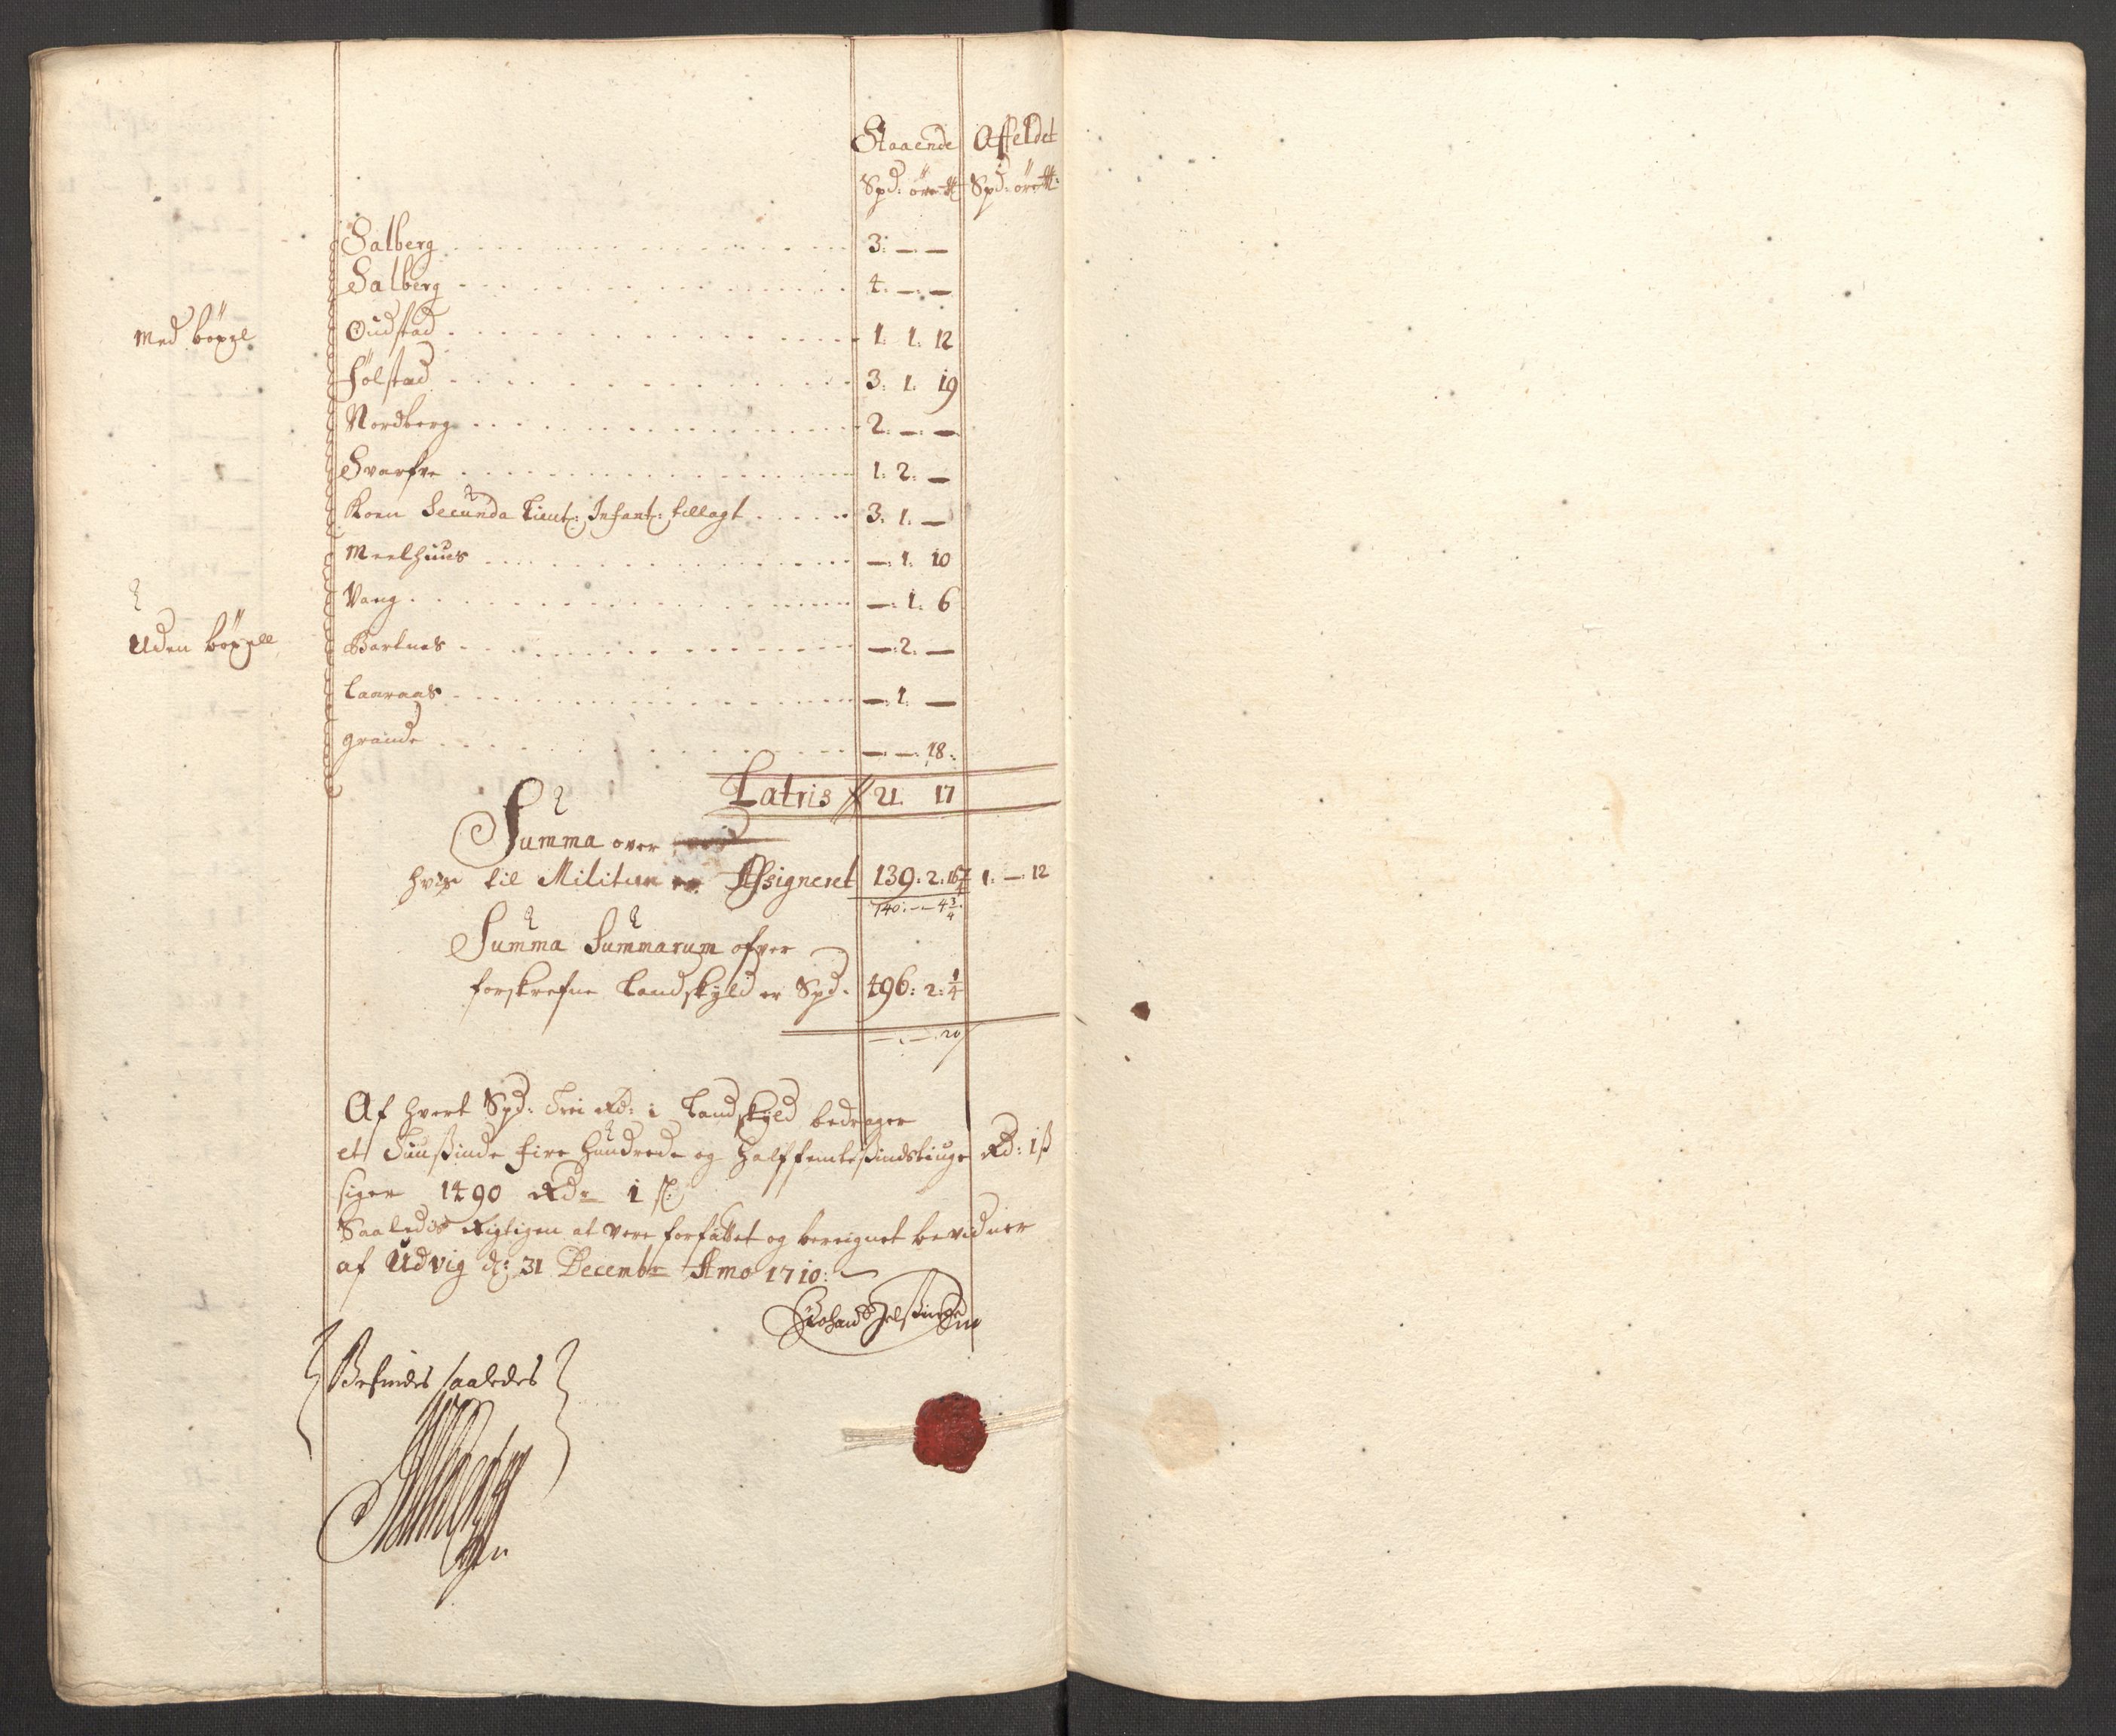 Staaende Affeldet
Spd: öre ₶ Spd: öre ₶:
Salberg 3: — —
Salberg 4: —: —
Med böxel
Oudstad 1: 1: 12
Følstad 3: 1: 19
Nordberg 2: —: —
Svarfve 1: 2: —
Koen Secunda Lieut: Infant: tillagt 3: 1: —
Meelhuus —: 1: 10
Vang —: 1: 6
Uden böxell
Bartnes —: 2: —
Laaraas —: 1: —
grande —: —: 18:
Latris 21. 17
Summa over
hvis til Militien er Assigneret 139: 2: 1: —: 12
140: — 4 3/4
Summa Summarum ofver
forskrefne Landskyld er Spd. 496: 2: 1/4
—: —: 20
Af hvert Spd: Trei Rd: i Landskyld bedrager
et Tuusinde fire hundrede og halffemtesindstiuge Rd: 1 ß
siger 1490 Rdr 1 ß
Saaledes Rigtigen at vere forfattet og beregnet bevidner
af Udvig d: 31 Decembr Anno 1710:
Befindes saaledes